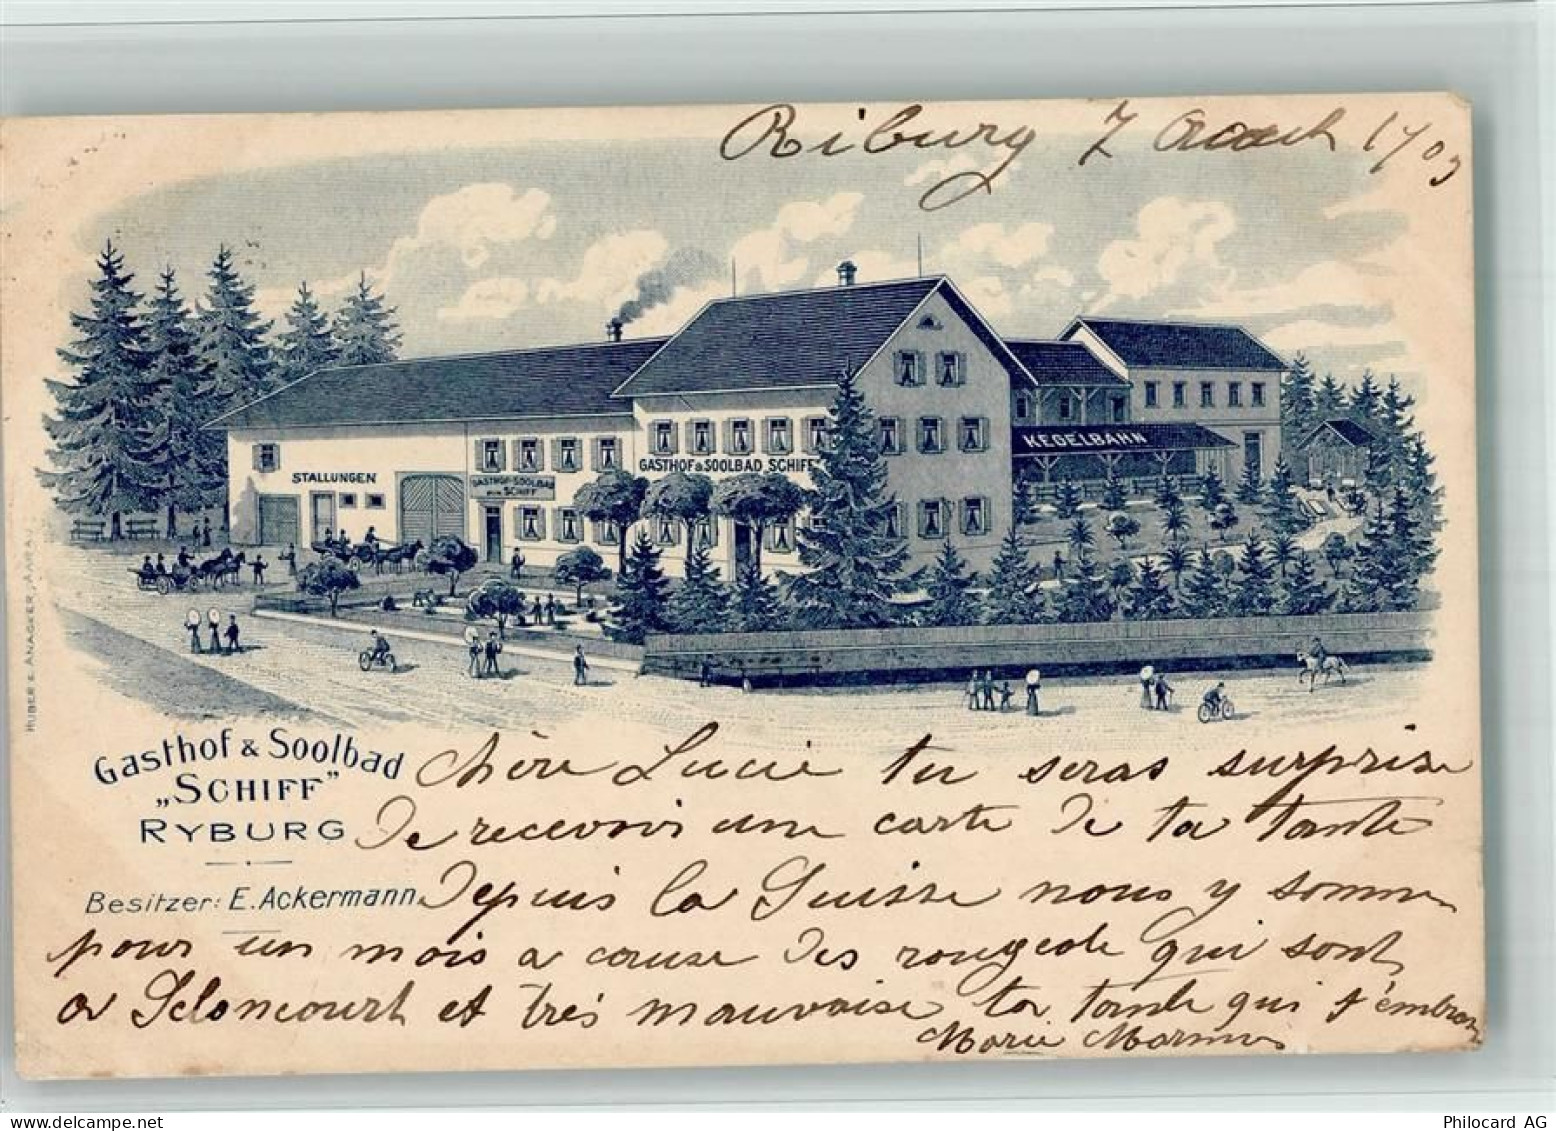 Riburg 7 Aout 1903
STALLUNGEN
GASTHOF & SOOLBAD
ZUM SCHIFF
GASTHOF & SOOLBAD SCHIFF
KEGELBAHN
HUBER & ANACKER, AARAU
Gasthof & Soolbad
„SCHIFF"
RYBURG
Besitzer: E. Ackermann
Chère Lucie tu seras surprise
de recevoir une carte de ta tante
Depuis la Suisse nous y somme
pour un mois a cause des rougeole qui sont
a Seloncourt et très mauvaise ta tante qui t'embrasse
Marie
Philocard AG